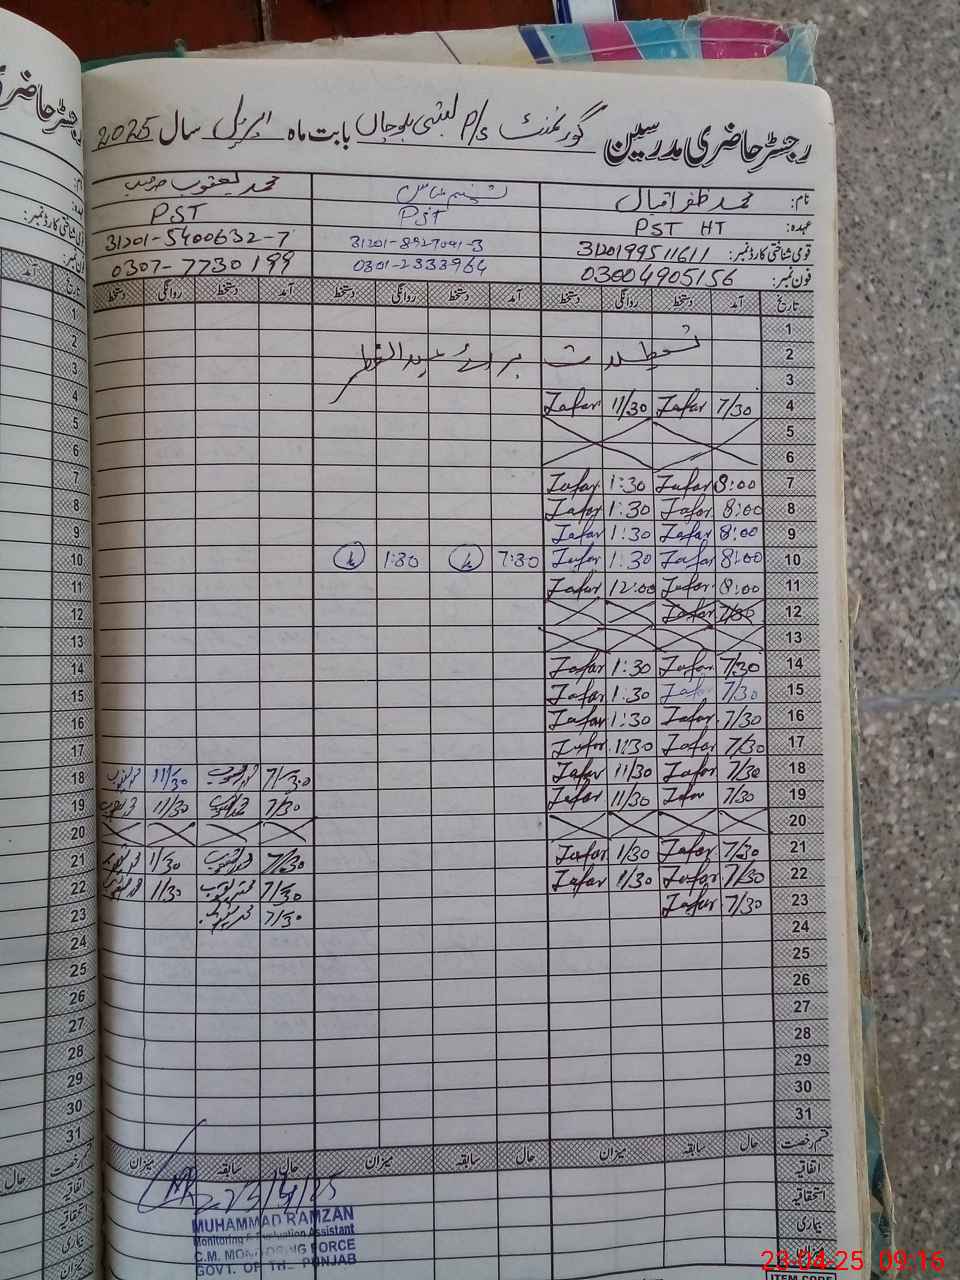 رجسٹر حاضری مدرسین گورنمنٹ P/S بستی بلوچاں بابت ماہ اپریل سال 2025
نام: محمد ظفر اقبال
محمد یعقوب صاحب
عہدہ: PST HT PST PST
قومی شناختی کارڈ نمبر: 3120199511611 31201-8927041-3 31201-5400632-7
فون نمبر: 03004905156 0301-2333964 0307-7730199
تاریخ آمد دستخط روانگی دستخط آمد دستخط روانگی دستخط آمد دستخط روانگی دستخط
1
2 تعطیلات برائے عید الفطر
3
4 7/30 Zafar 11/30 Zafar
5
6
7 8:00 Zafar 1:30 Zafar
8 8:00 Zafar 1:30 Zafar
9 8:00 Zafar 1:30 Zafar
10 8:00 Zafar 1:30 Zafar 7:30 1:30
11 8:00 Zafar 12:00 Zafar
12 7/30 Zafar
13
14 7/30 Zafar 1:30 Zafar
15 7/30 Zafar 1:30 Zafar
16 7/30 Zafar 1:30 Zafar
17 7/30 Zafar 1:30 Zafar
18 7/30 Zafar 11/30 Zafar 7/30 محمد یعقوب 11/30 محمد یعقوب
19 7/30 Zafar 11/30 Zafar 7/30 محمد یعقوب 11/30 محمد یعقوب
20
21 7/30 Zafar 1/30 Zafar 7/30 محمد یعقوب 1/30 محمد یعقوب
22 7/30 Zafar 1/30 Zafar 7/30 محمد یعقوب 1/30 محمد یعقوب
23 7/30 Zafar 7/30 محمد یعقوب
24
25
26
27
28
29
30
31
قسم رخصت حال سابقہ میزان حال سابقہ میزان حال سابقہ میزان
اتفاقیہ
استحقاقیہ
بیماری
میزان
23/4/25
MUHAMMAD RAMZAN
Monitoring & Evaluation Assistant
C.M. MONITORING FORCE
GOVT. OF THE PUNJAB
23-04-25 09:16
ITEM CODE